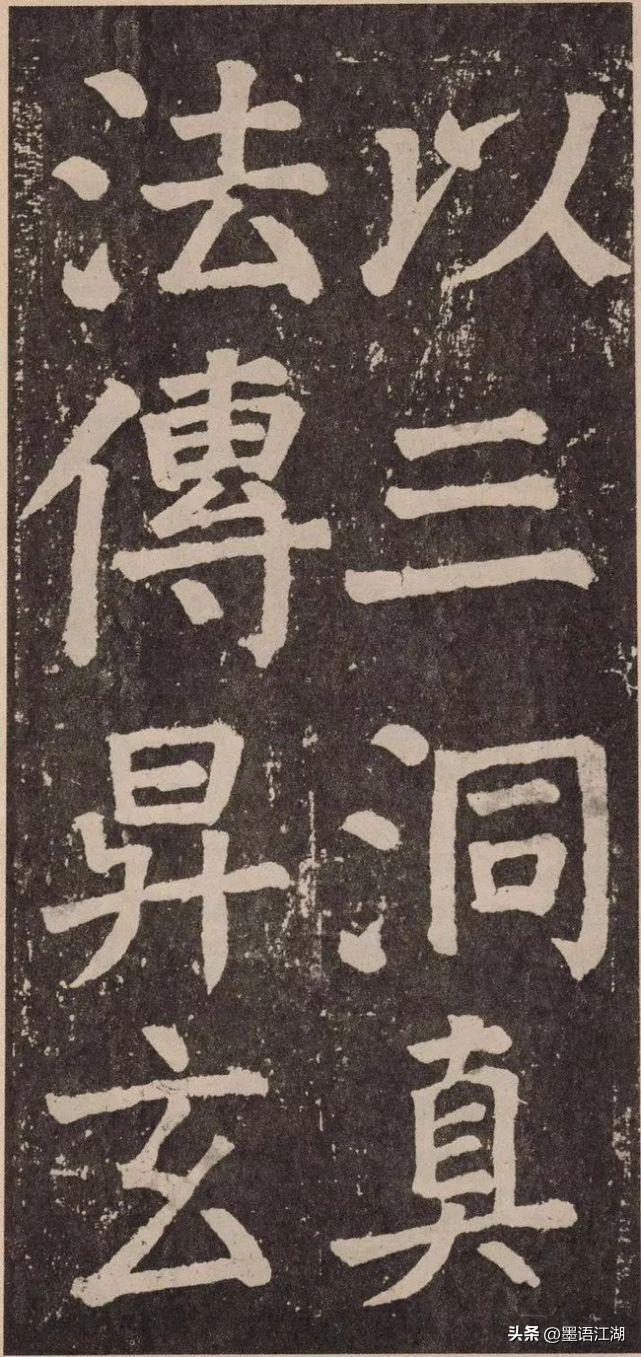 以三洞真
法傳昇玄
头条 @墨语江湖